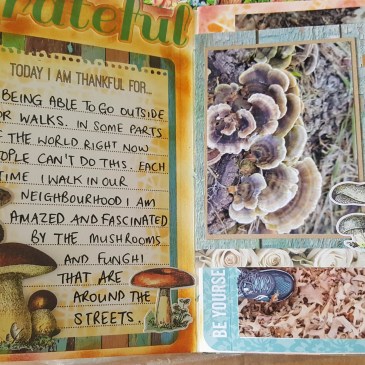 Grateful
TODAY I AM THANKFUL FOR...
BEING ABLE TO GO OUTSIDE
FOR WALKS. IN SOME PARTS
OF THE WORLD RIGHT NOW
PEOPLE CAN'T DO THIS. EACH
TIME I WALK IN OUR
NEIGHBOURHOOD I AM
AMAZED AND FASCINATED
BY THE MUSHROOMS
AND FUNGHI
THAT ARE
AROUND THE
STREETS.
BE YOURSE